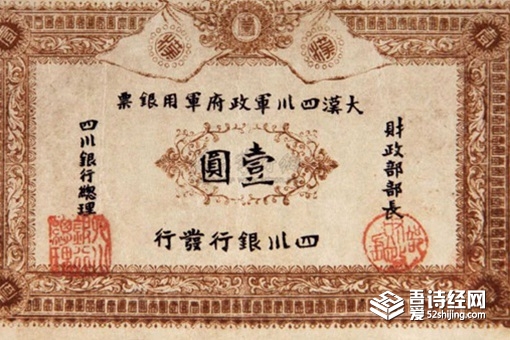 大漢四川軍政府軍用銀票
財政部部長
壹圓
四川銀行總理
四川銀行發行
吾诗经网
www.52shijing.com